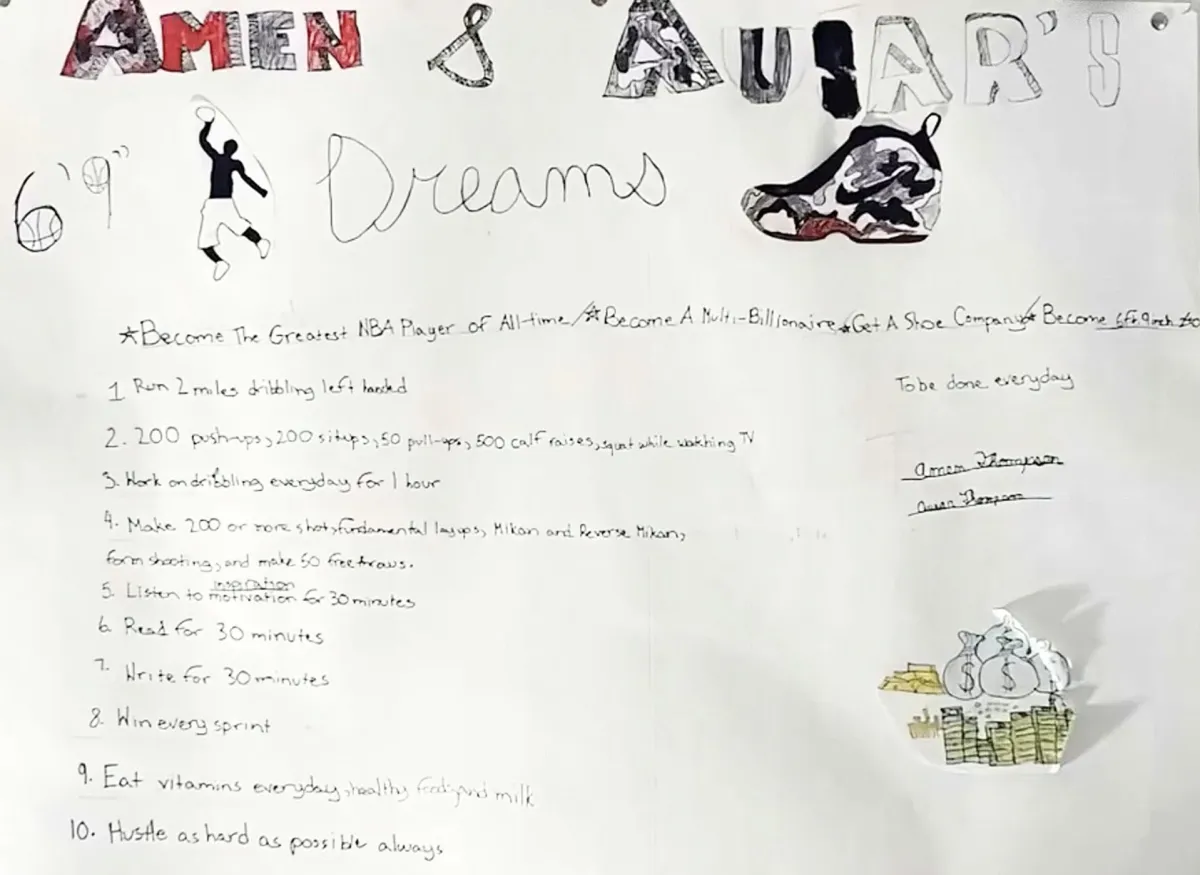 AMEN & AUSAR'S
6'9" Dreams
☆Become The Greatest NBA Player of All-time/☆Become A Multi-Billionaire☆Get A Shoe Company☆Become 6ft. 9inch
1 Run 2 miles dribbling left handed
To be done everyday
2. 200 push-ups, 200 situps, 50 pull-ups, 500 calf raises, squat while watching TV
3. Work on dribbling everyday for 1 hour
Amen Thompson
Ausar Thompson
4. Make 200 or more shots, fundamental layups, Mikan and Reverse Mikan,
form shooting, and make 50 free throws.
inspiration
5. Listen to motivation for 30 minutes
6. Read for 30 minutes
7. Write for 30 minutes
8. Win every sprint
9. Eat vitamins everyday, healthy foods, and milk
10. Hustle as hard as possible always